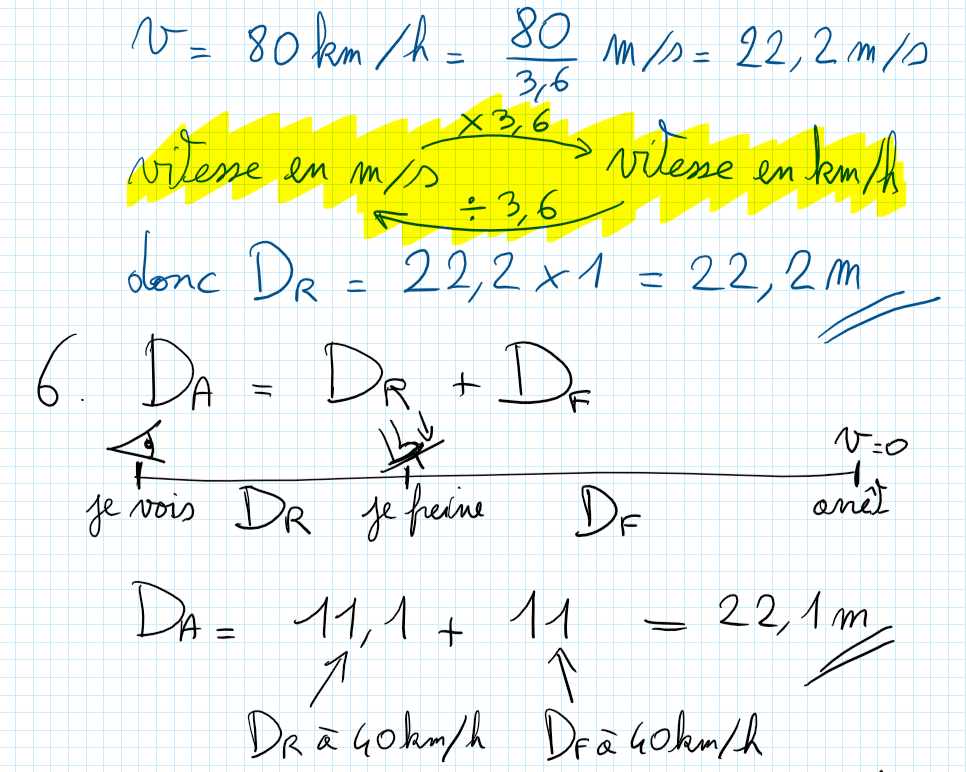 v = 80 km/h = 80/3,6 m/s = 22,2 m/s
× 3,6
vitesse en m/s vitesse en km/h
÷ 3,6
donc DR = 22,2 × 1 = 22,2 m
6. DA = DR + DF
v = 0
je vois DR je freine DF arrêt
DA = 11,1 + 11 = 22,1 m
DR à 40 km/h DF à 40 km/h